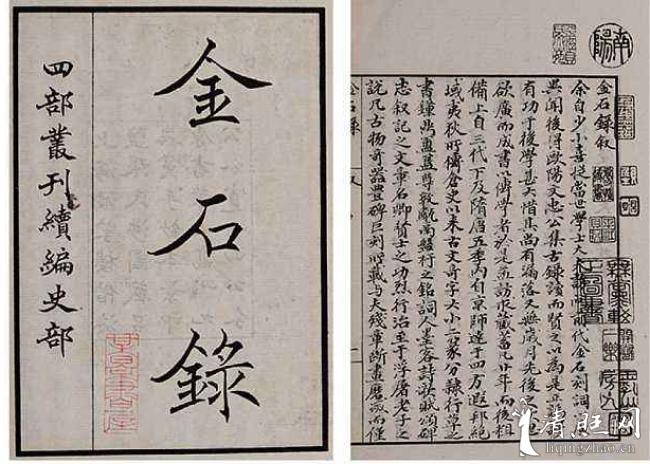 金石錄
四部叢刊續編史部
南陽
金石錄叙
余自少小喜從當世學士大夫訪問前代金石刻詞
異聞後得歐陽文忠公集古錄讀而賢之以為是正
有功于後學甚大惜其尚有漏落又無歲月先後之
欲廣而成書以傳學者於是益訪求藏蓄凡廿年而後粗
備上自三代下及隋唐五季內自京師達于四方遐邦絕
域夷狄所傳倉史以來古文奇字大小二篆分隸行草之
書鐘鼎簠簋尊敦甗鬲之銘詞人墨客詩歌賦頌碑
志叙記之文章名卿賢士之功烈行治至于浮屠老子之
說凡古物奇器豐碑巨刻所載與夫殘章斷畫磨滅而僅
金石錄 叙 一
清旺网
liqingzhao.cn